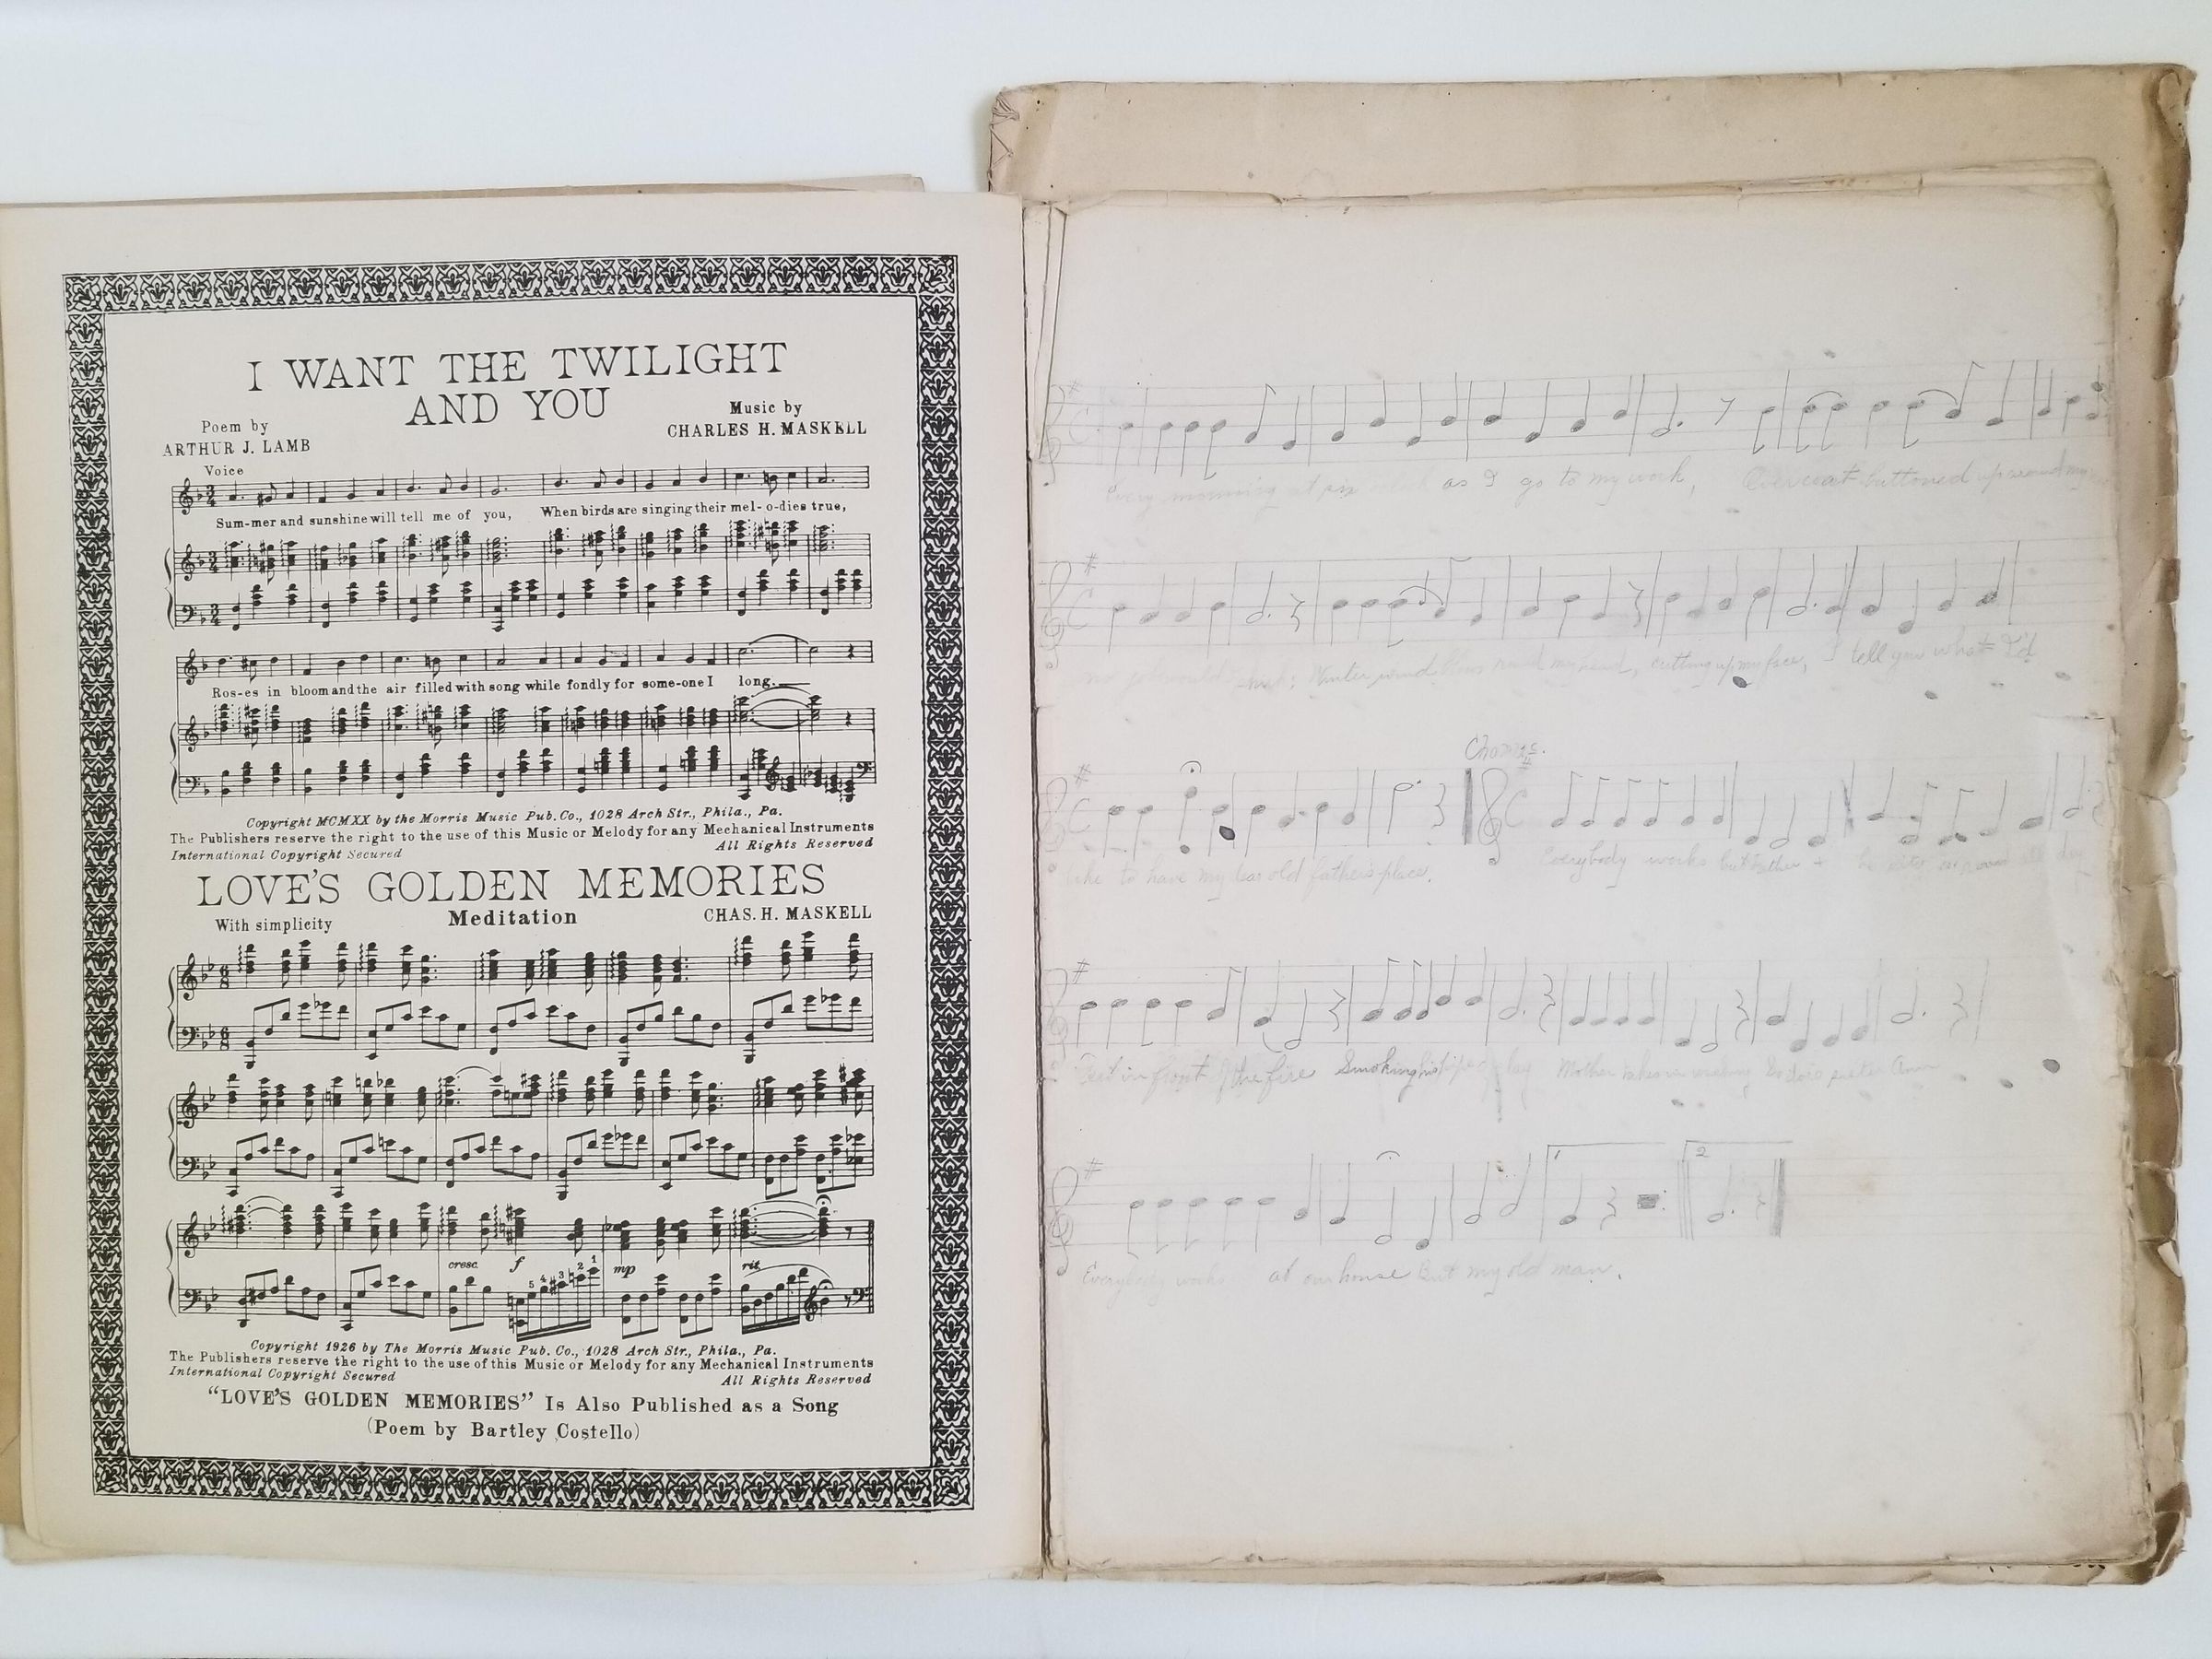 I WANT THE TWILIGHT
AND YOU
Poem by
ARTHUR J. LAMB
Music by
CHARLES H. MASKELL
Voice
Sum-mer and sunshine will tell me of you, When birds are singing their mel-o-dies true,
Ros-es in bloom and the air filled with song while fondly for some-one I long.
Copyright MCMXX by the Morris Music Pub. Co., 1028 Arch Str., Phila., Pa.
The Publishers reserve the right to the use of this Music or Melody for any Mechanical Instruments
International Copyright Secured All Rights Reserved
LOVE'S GOLDEN MEMORIES
With simplicity Meditation CHAS. H. MASKELL
cresc f 5 4 3 2 1 mp rit
Copyright 1926 by The Morris Music Pub. Co., 1028 Arch Str., Phila., Pa.
The Publishers reserve the right to the use of this Music or Melody for any Mechanical Instruments
International Copyright Secured All Rights Reserved
"LOVE'S GOLDEN MEMORIES" Is Also Published as a Song
(Poem by Bartley Costello)
Every morning at six as I go to my work, Overcoat buttoned up round my
no : Winter wind blows round my head, cutting up my face, I tell you what I'd
Chorus.
like to have my dear old father's place. Everybody works but father + he sits around all day
Feet in front of the fire Smoking his pipe Mother takes in washing So does sister Ann
1 2
Everybody works at our house But my old man.